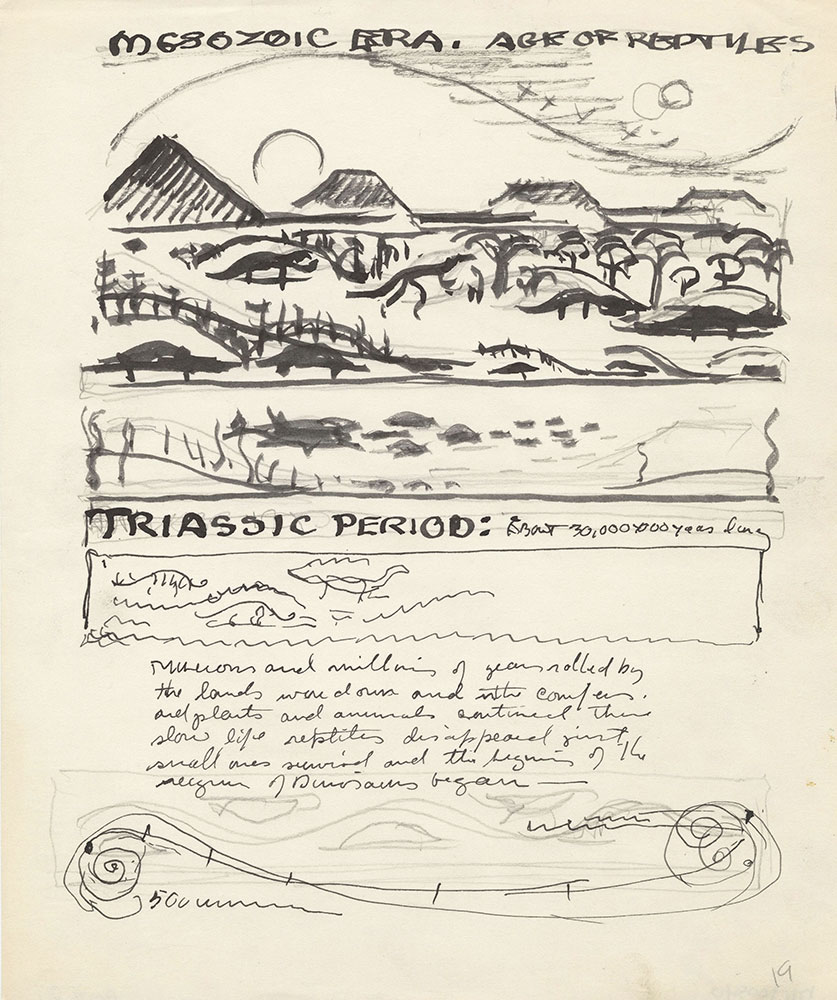 MESOZOIC ERA. AGE OF REPTILES
TRIASSIC PERIOD: About 30,000,000 years long
and millions of years rolled by
the lands wore down and
and plants and animals continued there
slow life reptiles disappeared just
small ones survived and the begining of the
reign of Dinosaurs began —
500
19